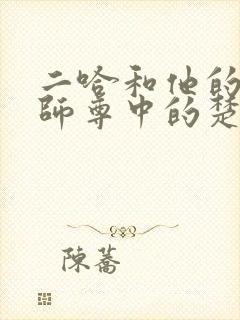 二哈和他的
師尊中的楚
陳蕎